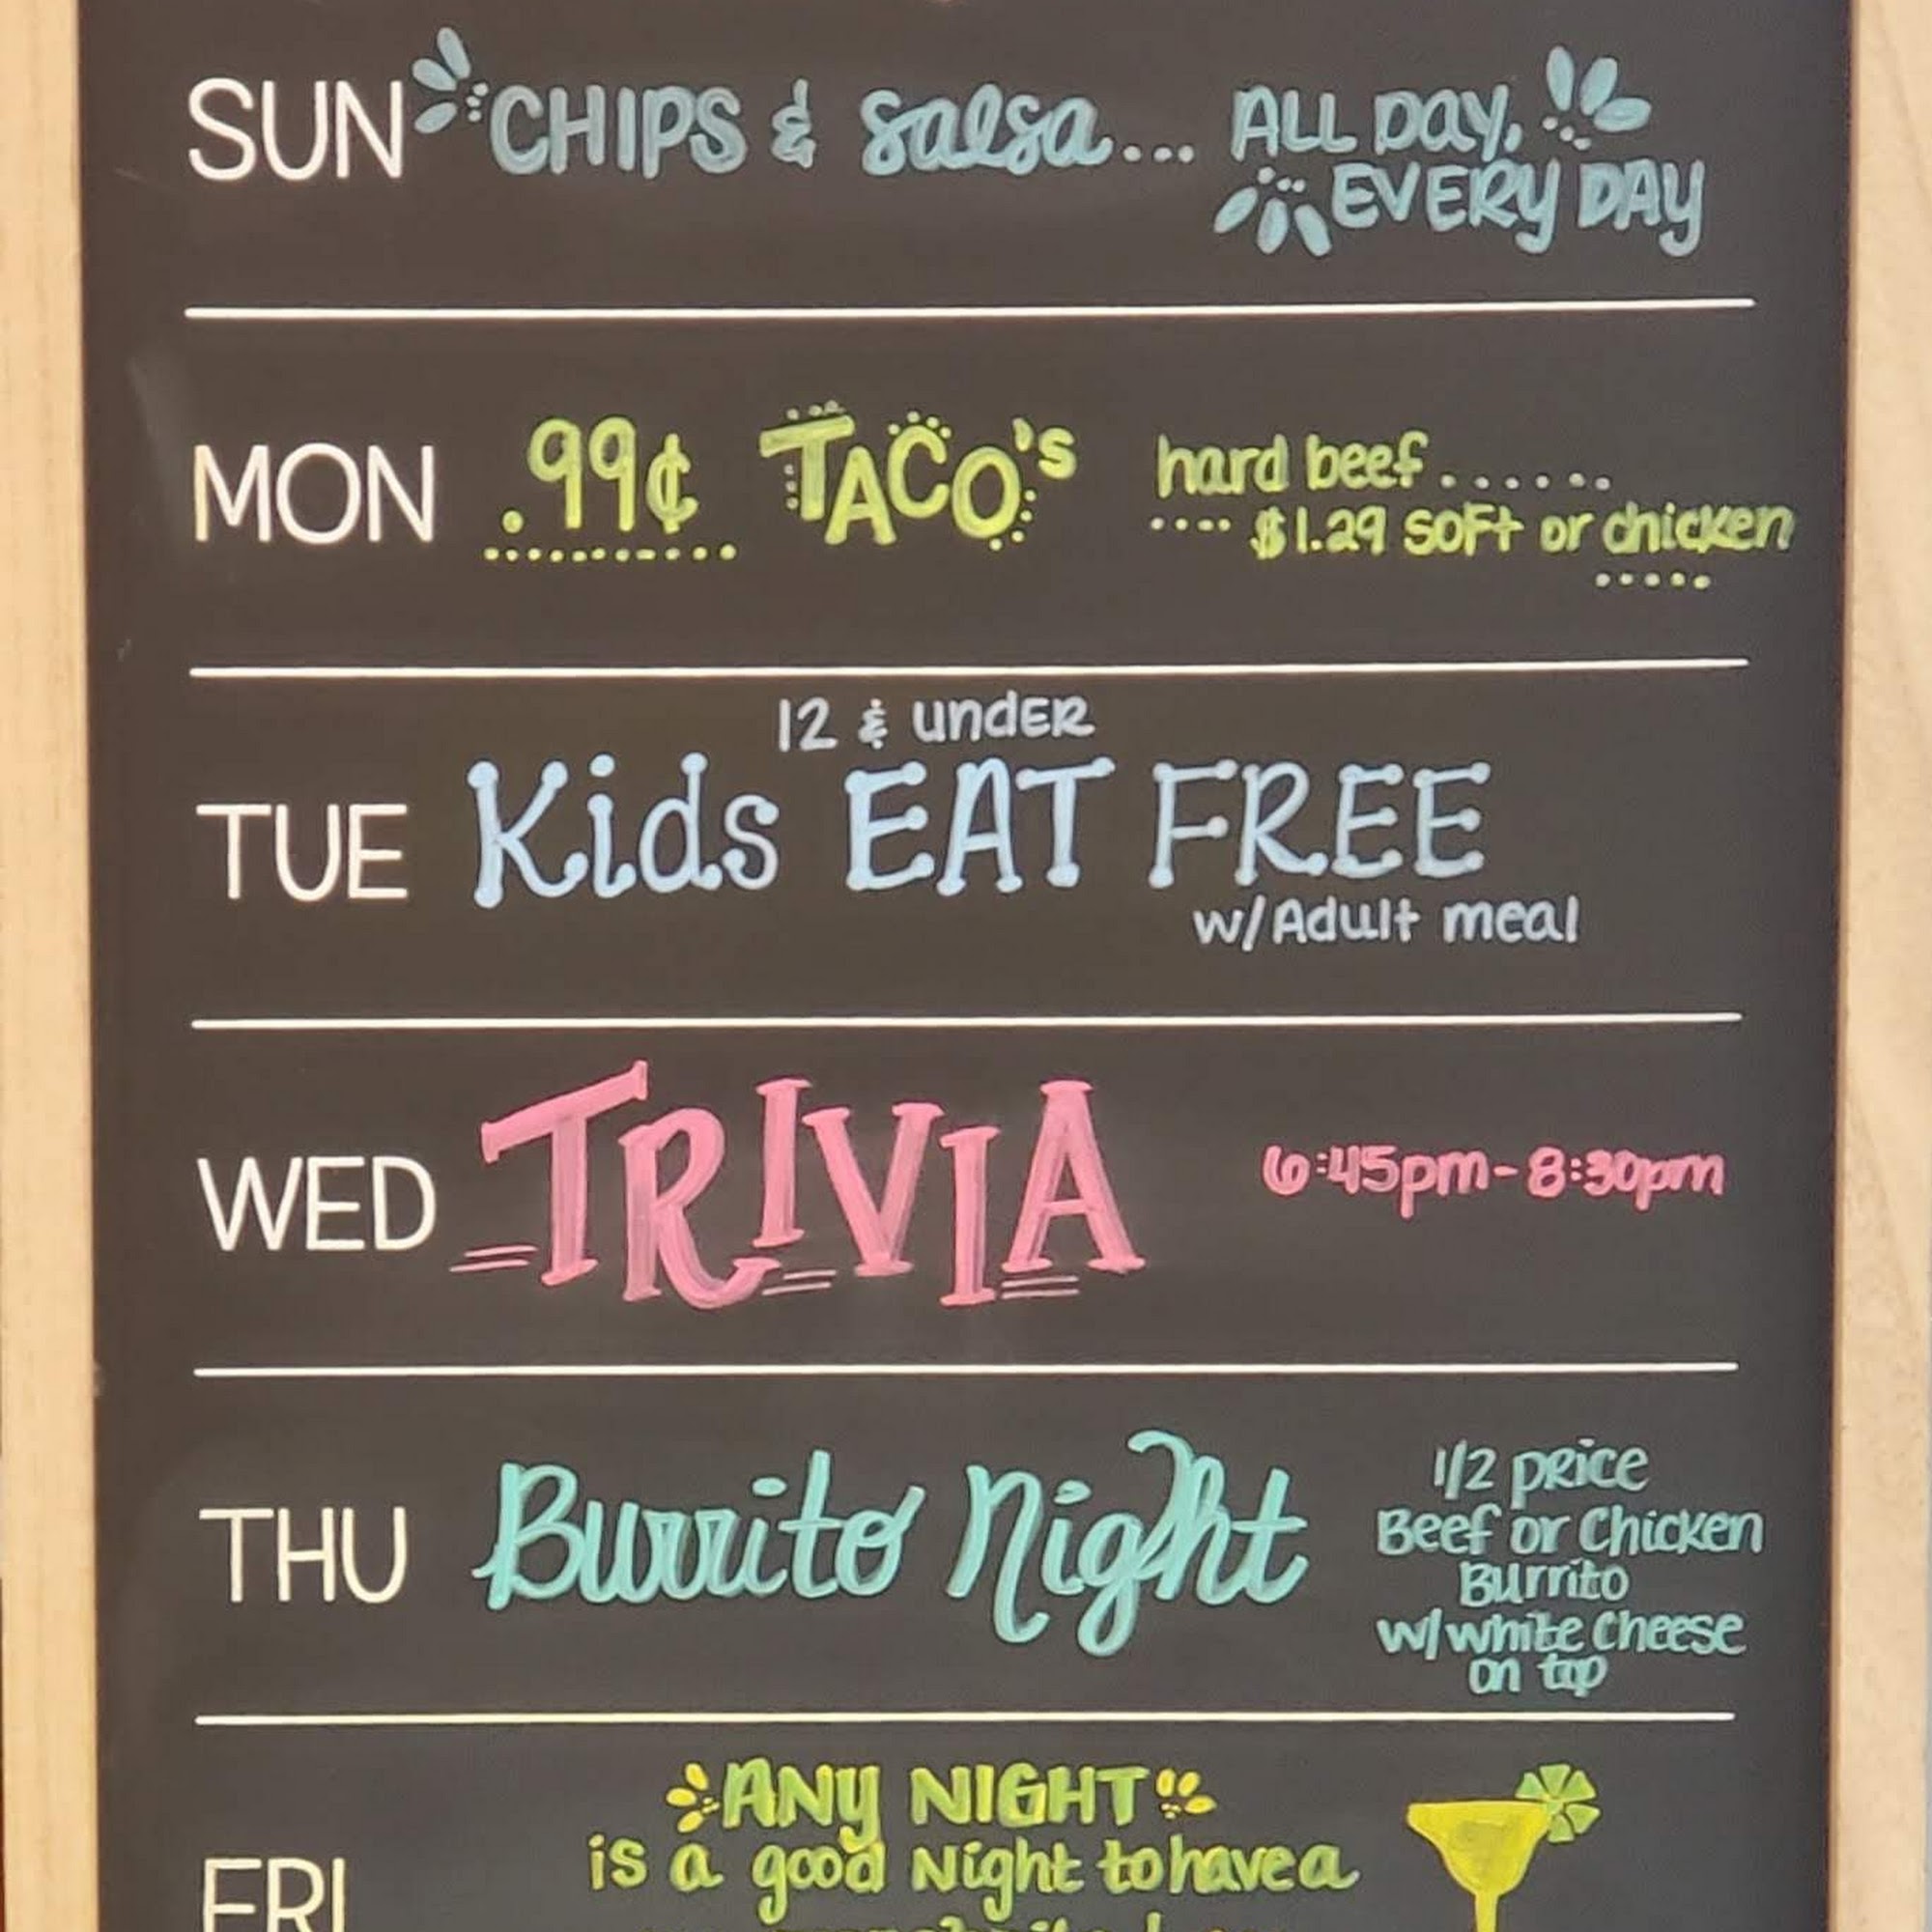 SUN CHIPS & Salsa... ALL DAY,
EVERY DAY
MON .99¢ TACO's hard beef......
.... $1.29 soft or chicken
12 & under
TUE Kids EAT FREE
w/Adult meal
WED TRIVIA 6:45pm-8:30pm
THU Burrito Night 1/2 price
Beef or Chicken
Burrito
w/white cheese
on top
ANY NIGHT
is a good Night to have a
FRI